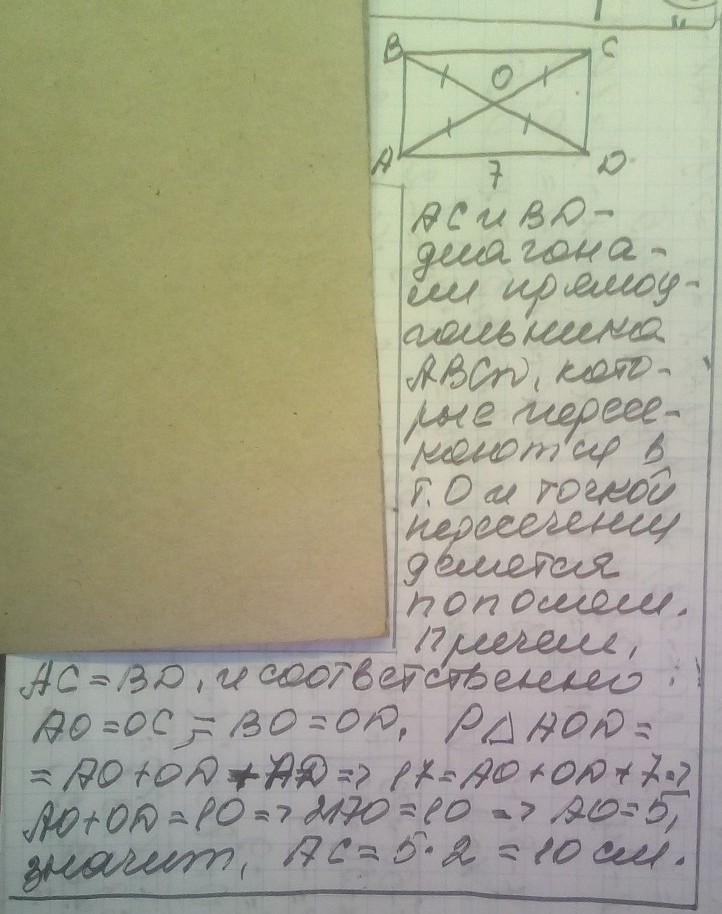 B C
O
A D
7
AC и BD -
диагона-
ли прямоу-
гольника
ABCD, кото-
рые пересе-
каются в
т. O и точкой
пересечения
делятся
пополам.
Причем,
AC = BD, и соответственно
AO = OC = BO = OD. P△AOD =
= AO + OD + AD => 17 = AO + OD + 7 =>
AO + OD = 10 => 2AO = 10 => AO = 5,
значит, AC = 5 · 2 = 10 см.